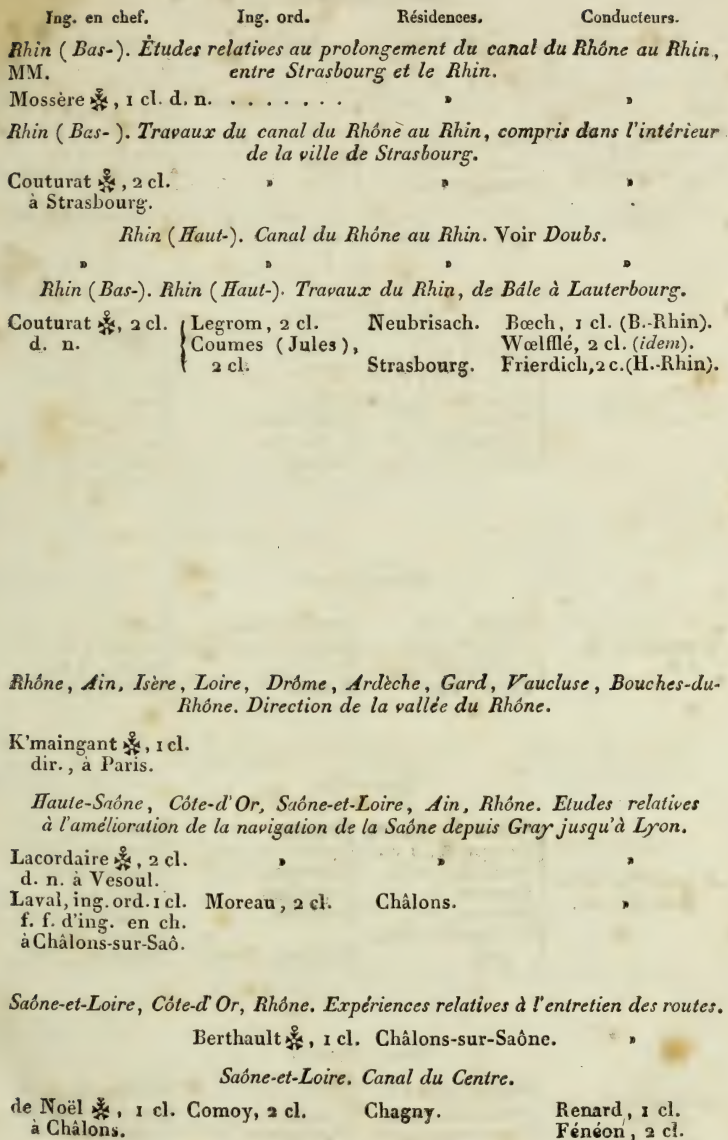 Ing. en chef. Ing. ord. Résidences. Conducteurs.
Rhin ( Bas- ). Études relatives au prolongement du canal du Rhône au Rhin,
MM. entre Strasbourg et le Rhin.
Mossère ✻, 1 cl. d. n. . . . . . . . » »
Rhin ( Bas- ). Travaux du canal du Rhône au Rhin, compris dans l'intérieur
de la ville de Strasbourg.
Couturat ✻, 2 cl. » » »
à Strasbourg.
Rhin ( Haut-). Canal du Rhône au Rhin. Voir Doubs.
» » » »
Rhin ( Bas-). Rhin ( Haut-). Travaux du Rhin, de Bâle à Lauterbourg.
Couturat ✻, 2 cl. { Legrom, 2 cl. Neubrisach. Bœch, 1 cl. (B.-Rhin).
d. n. Coumes ( Jules ), Wœlfflé, 2 cl. (idem).
2 cl. Strasbourg. Frierdich, 2 c. (H.-Rhin).
Rhône, Ain, Isère, Loire, Drôme, Ardèche, Gard, Vaucluse, Bouches-du-
Rhône. Direction de la vallée du Rhône.
K'maingant ✻, 1 cl.
dir., à Paris.
Haute-Saône, Côte-d'Or, Saône-et-Loire, Ain, Rhône. Etudes relatives
à l'amélioration de la navigation de la Saône depuis Gray jusqu'à Lyon.
Lacordaire ✻, 2 cl. » » »
d. n. à Vesoul.
Laval, ing. ord. 1 cl. Moreau, 2 cl. Châlons. »
f. f. d'ing. en ch.
à Châlons-sur-Saô.
Saône-et-Loire, Côte-d'Or, Rhône. Expériences relatives à l'entretien des routes.
Berthault ✻, 1 cl. Châlons-sur-Saône. »
Saône-et-Loire. Canal du Centre.
de Noël ✻, 1 cl. Comoy, 2 cl. Chagny. Renard, 1 cl.
à Châlons. Fénéon, 2 cl.